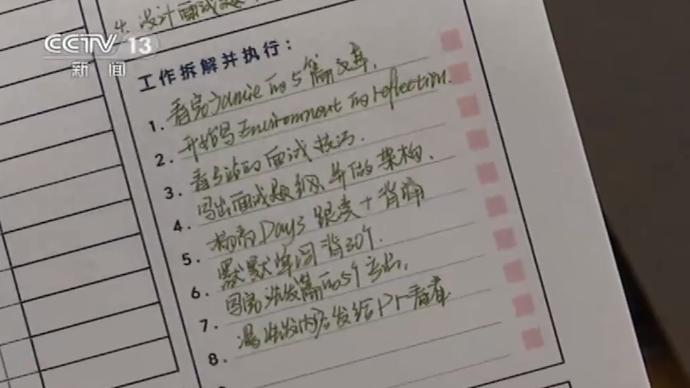 CCTV 13
新闻
4. 设计面试题
工作拆解并执行：
1. 看完Jamie的5篇文章.
2. 开始写Environment的reflection.
3. 看的面试技巧.
4. 写出面试提纲,并做架构.
5. Day3 跟读+背诵
6. 默默单词背30个.
7. 写完的5个
8. 内容发给Pr看看